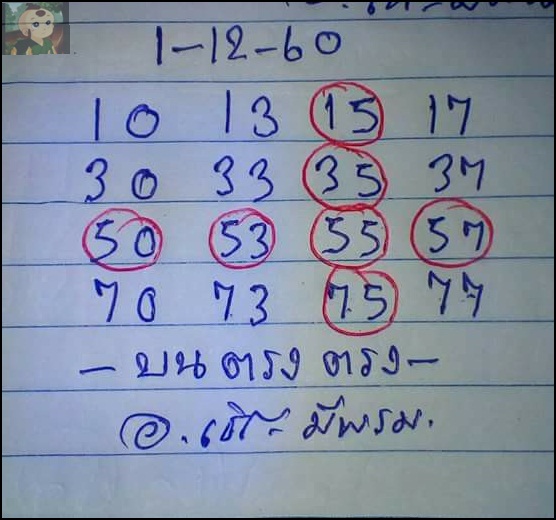 1-12-60
10 13 15 17
30 33 35 37
50 53 55 57
70 73 75 77
- บน ตรง ตรง -
อ. มีพรม.